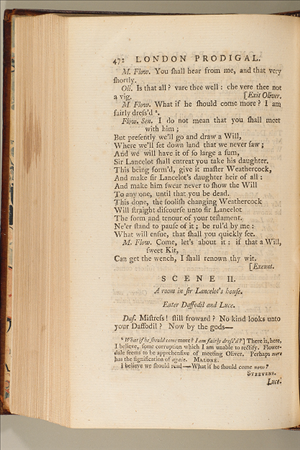 472 LONDON PRODIGAL.
M. Flow. You shall hear from me, and that very
shortly.
Oli. Is that all? vare thee well: che vere thee not
a vig. [Exit Oliver.
M. Flow. What if he should come more? I am
fairly dress'd ⁴.
Flow. Sen. I do not mean that you shall meet
with him;
But presently we'll go and draw a Will,
Where we'll set down land that we never saw;
And we will have it of so large a sum,
Sir Lancelot shall entreat you take his daughter.
This being form'd, give it master Weathercock,
And make sir Lancelot's daughter heir of all:
And make him swear never to show the Will
To any one, until that you be dead.
This done, the foolish changing Weathercock
Will straight discourse unto sir Lancelot
The form and tenour of your testament.
Ne'er stand to pause of it; be rul'd by me:
What will ensue, that shall you quickly see.
M. Flow. Come, let's about it: if that a Will,
sweet Kit,
Can get the wench, I shall renown thy wit.
[Exeunt.
SCENE II.
A room in sir Lancelot's house.
Enter Daffodil and Luce.
Daf. Mistress! still froward? No kind looks unto
your Daffodil? Now by the gods—
⁴ What if he should come more? I am fairly dress'd?] There is, here,
I believe, some corruption which I am unable to rectify. Flower-
dale seems to be apprehensive of meeting Oliver. Perhaps more
has the signification of again. MALONE.
I believe we should read—What if he should come now?
STEEVENS.
Luce.